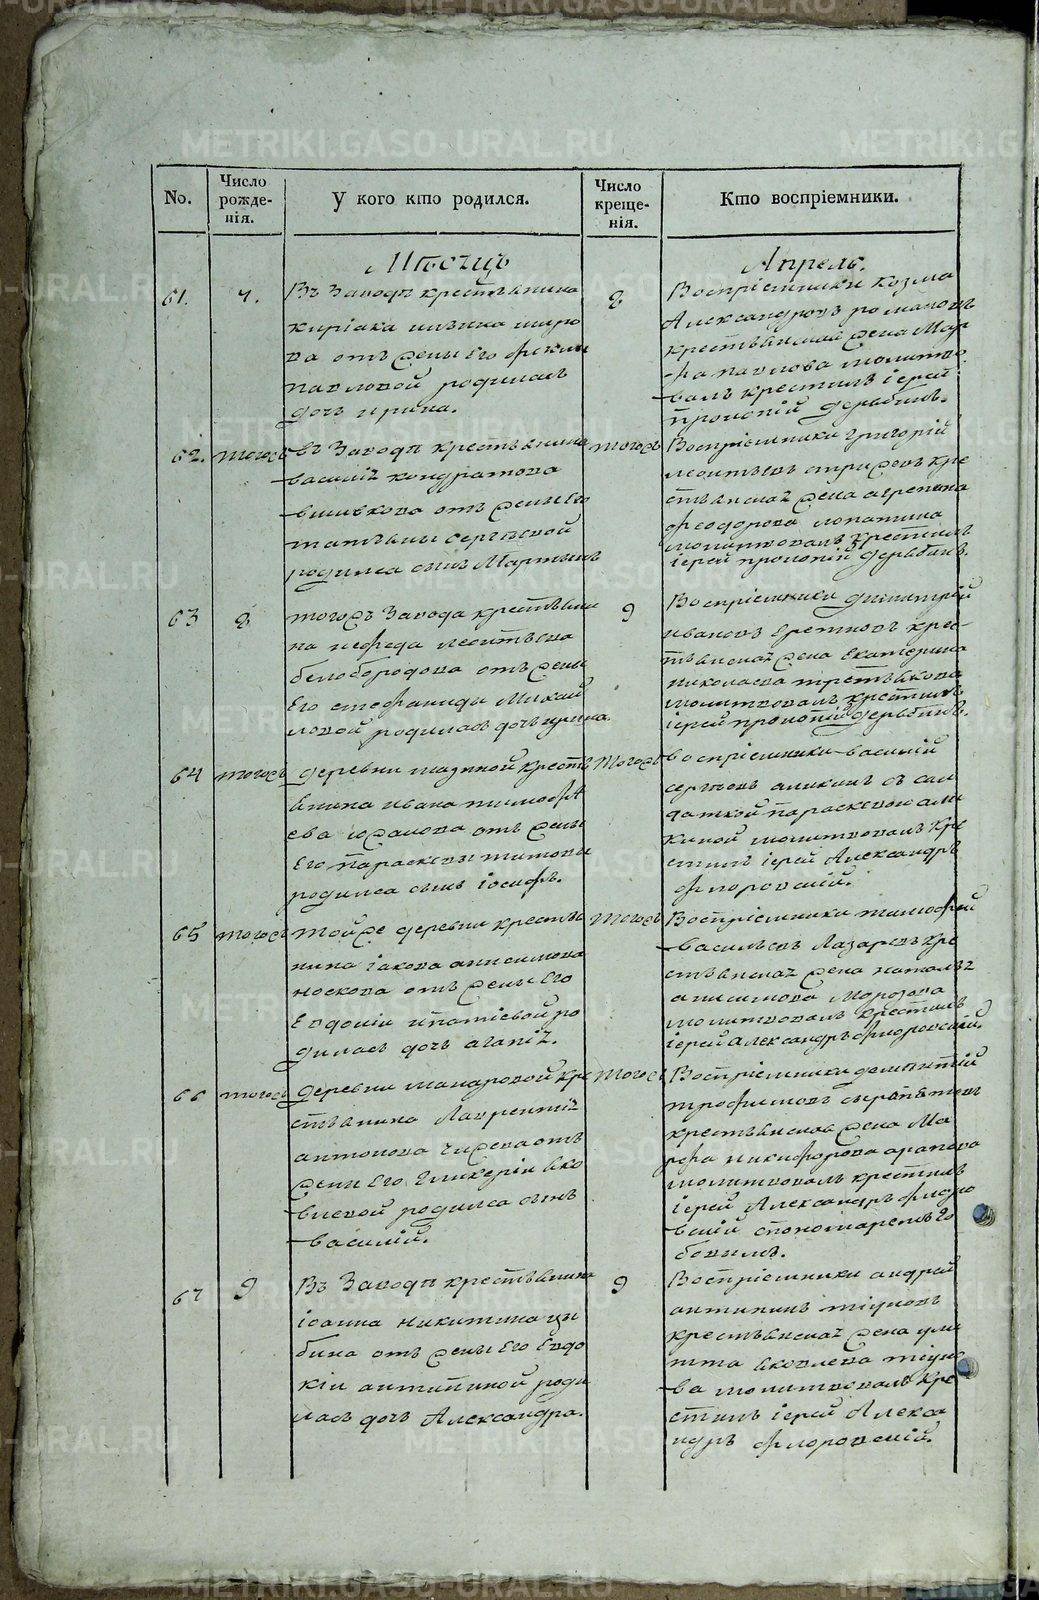 METRIKI.GASO-URAL.RU
No.
Число рожденія.
У кого кто родился.
Число крещенія.
Кто воспріемники.
Мѣсяцъ
Апрель.
61.
7.
Въ Заводѣ крестьянина
киріака
ва отъ жены его
павловой родилась
дочь ирина.
8
Воспріемники козма
Александровъ романовъ
крестьянская жена мар
фа павлова молитво
валъ крестилъ іерей
прокопій дерябинъ.
62.
тогожъ
въ Заводѣ крестьянина
василія кондратова
вшивкова отъ жены его
татьяны сергѣевой
родился сынъ Мартынъ
тогожъ
Воспріемники григорій
леонтьевъ стрижевъ кре
стьянская жена агрепина
феодорова лопатина
молитвовалъ крестилъ
іерей прокопій дерябинъ.
63
8
тогожъ Завода крестьяни
на нефеда леонтьева
белобородова отъ жены
его стефаниды Михай
ловой родилась дочь ирина.
9
Воспріемники димитрій
ивановъ крес-
тьянская жена екатерина
николаева третьякова
молитвовалъ крестилъ
іерей прокопій дерябинъ.
64
тогожъ
деревни мазиной кресть
янина ивана тимофѣ
ева отъ жены
его параскевы титовы
родился сынъ іосифъ.
тогожъ
воспріемники василій
сергѣевъ аликинъ съ сол
даткой параскевой али
киной молитвовалъ кре
стилъ іерей Александръ
флоровскій.
65
тогожъ
тойже деревни кресть
нина іакова анисимова
носкова отъ жены его
Евдокіи ипатіевой ро
дилась дочь агапія.
тогожъ
Воспріемники тимофей
васильевъ Лазаревъ кре
стьянская жена наталья
анисимова Морозова
молитвовалъ крестилъ
іерей александръ флоровскій.
66
тогожъ
деревни макаровой кре
стьянина Лаврентія
антонова чижева отъ
жены его гликеріи яко
влевой родился сынъ
василій.
тогожъ
Воспріемники дементій
трофимовъ сыропятовъ
крестьянская жена Ма
рфа никифорова арапова
молитвовалъ крестилъ
іерей Александръ флоро
вскій спономаремъ
67
9
Въ Заводѣ крестьянина
іоанна никитина цы
бина отъ жены его евдо
кіи антипиной роди
лась дочь Александра.
9
Воспріемники андрей
антипинъ тіуновъ
крестьянская жена ули
тта яковлева тіуно
ва молитвовалъ кре
стилъ іерей Алекса
ндръ флоровскій.